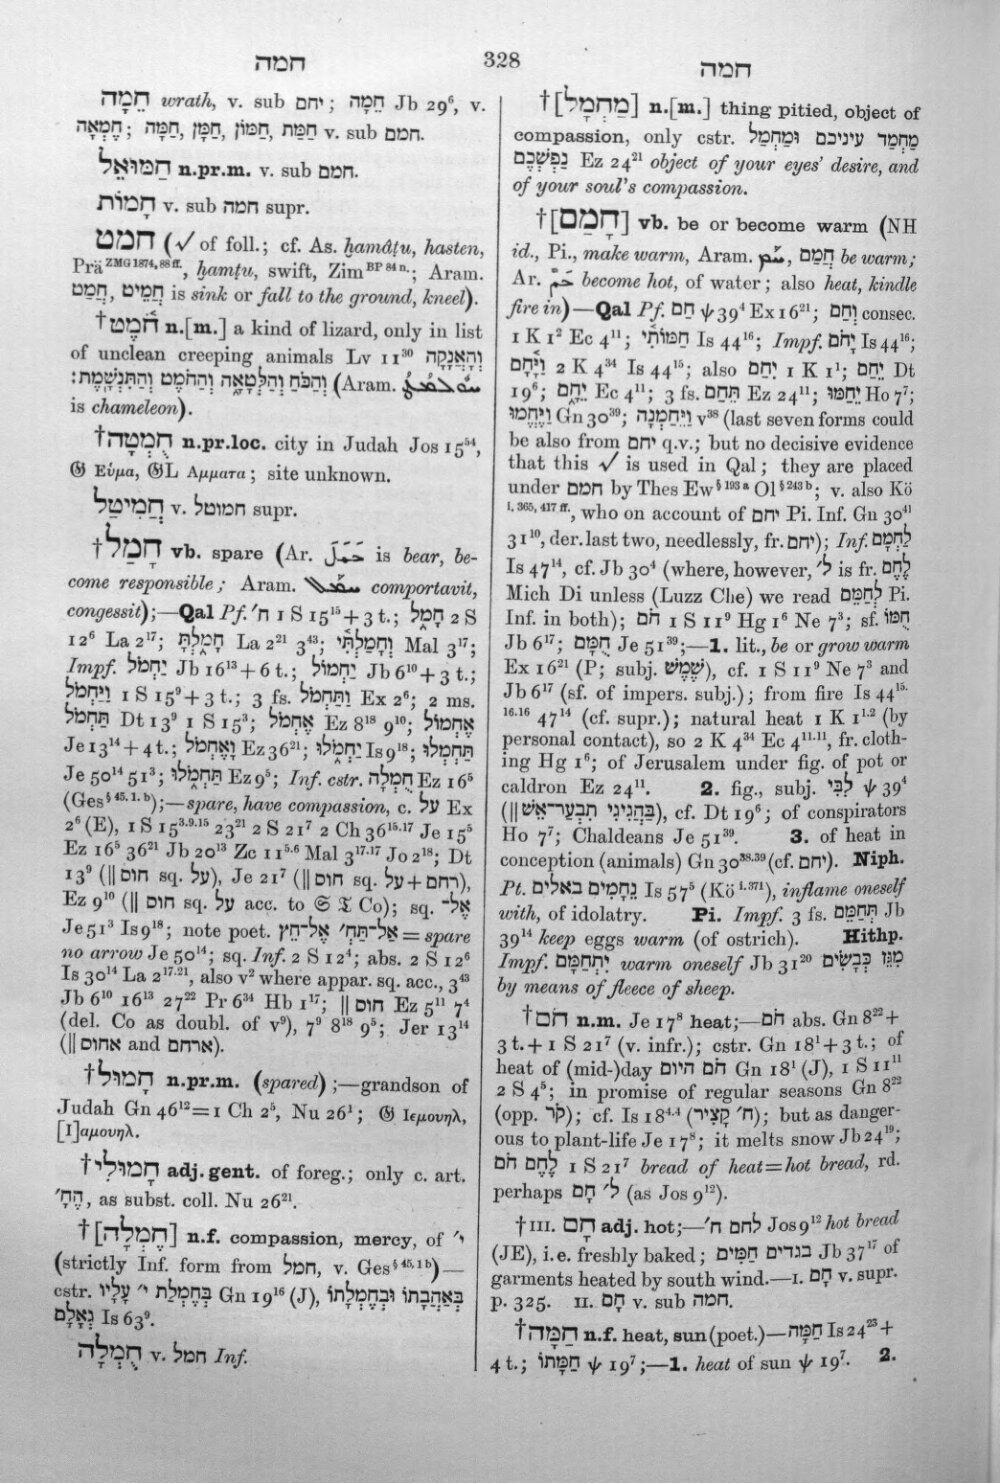 חמה
328
חמה
חֵמָה wrath, v. sub יחם; חֵמָה Jb 29⁶, v.
חֶמְאָה; חַמַּת, חַמּוֹן, חַמָּן, חַמָּה v. sub חמם.
חַמּוּאֵל n.pr.m. v. sub חמם.
חָמוֹת v. sub חמה supr.
חמט (√ of foll.; cf. As. ḫamâṭu, hasten,
Prä ZMG 1874, 88 ff., ḫamṭu, swift, Zim BP 84 n.; Aram.
חֲמֵיט, חֲמַט is sink or fall to the ground, kneel).
†חֹמֶט n.[m.] a kind of lizard, only in list
of unclean creeping animals Lv 11³⁰ וְהָאֲנָקָה
וְהַכֹּחַ וְהַלְּטָאָה וְהַחֹמֶט וְהַתִּנְשָׁמֶת: (Aram.
is chameleon).
†חֻמְטָה n.pr.loc. city in Judah Jos 15⁵⁴,
𝔊 Εὐμα, 𝔊L Αμματα; site unknown.
חֲמִיטַל v. חמוטל supr.
†חָמַל vb. spare (Ar. حَمَلَ is bear, be-
come responsible; Aram. comportavit,
congessit);—Qal Pf. ח׳ 1 S 15¹⁵ + 3 t.; חָמָל 2 S
12⁶ La 2¹⁷; חָמָלְתָּ La 2²¹ 3⁴³; וְחָמַלְתִּי Mal 3¹⁷;
Impf. יַחְמֹל Jb 16¹³ + 6 t.; יַחְמוֹל Jb 6¹⁰ + 3 t.;
וַיַּחְמֹל 1 S 15⁹ + 3 t.; 3 fs. וַתַּחְמֹל Ex 2⁶; 2 ms.
תַּחְמֹל Dt 13⁹ 1 S 15³; אֶחְמֹל Ez 8¹⁸ 9¹⁰; אֶחְמוֹל
Je 13¹⁴ + 4 t.; וָאֶחְמֹל Ez 36²¹; יַחְמֹלוּ Is 9¹⁸; תַּחְמְלוּ
Je 50¹⁴ 51³; תַּחְמֹלוּ Ez 9⁵; Inf. cstr. חֻמְלָה Ez 16⁵
(Ges § 45. 1. b);—spare, have compassion, c. על Ex
2⁶ (E), 1 S 15³·⁹·¹⁵ 23²¹ 2 S 21⁷ 2 Ch 36¹⁵·¹⁷ Je 15⁵
Ez 16⁵ 36²¹ Jb 20¹³ Zc 11⁵·⁶ Mal 3¹⁷·¹⁷ Jo 2¹⁸; Dt
13⁹ (‖ חוס sq. על), Je 21⁷ (‖ חוס sq. על + רחם),
Ez 9¹⁰ (‖ חוס sq. על acc. to 𝔖 𝔗 Co); sq. אֶל־
Je 51³ Is 9¹⁸; note poet. אַל־תַּחְ׳ אֶל־חֵץ = spare
no arrow Je 50¹⁴; sq. Inf. 2 S 12⁴; abs. 2 S 12⁶
Is 30¹⁴ La 2¹⁷·²¹, also v² where appar. sq. acc., 3⁴³
Jb 6¹⁰ 16¹³ 27²² Pr 6³⁴ Hb 1¹⁷; ‖ חוס Ez 5¹¹ 7⁴
(del. Co as doubl. of v⁹), 7⁹ 8¹⁸ 9⁵; Jer 13¹⁴
(‖ אחוס and ארחם).
†חָמוּל n.pr.m. (spared);—grandson of
Judah Gn 46¹² = 1 Ch 2⁵, Nu 26¹; 𝔊 Ιεμουηλ,
[Ι]αμουηλ.
†חָמוּלִי adj.gent. of foreg.; only c. art.
הֶחָ׳, as subst. coll. Nu 26²¹.
†[חֶמְלָה] n.f. compassion, mercy, of י׳
(strictly Inf. form from חמל, v. Ges § 45, 1 b)—
cstr. בְּחֶמְלַת י׳ עָלָיו Gn 19¹⁶ (J), בְּאַהֲבָתוֹ וּבְחֶמְלָתוֹ
גְאָלָם Is 63⁹.
חֻמְלָה v. חמל Inf.
†[מַחְמָל] n.[m.] thing pitied, object of
compassion, only cstr. מַחְמַד עיניכם וּמַחְמַל
נַפְשְׁכֶם Ez 24²¹ object of your eyes' desire, and
of your soul's compassion.
†[חָמַם] vb. be or become warm (NH
id., Pi., make warm, Aram. חֲמַם, be warm;
Ar. حَمَّ become hot, of water; also heat, kindle
fire in)—Qal Pf. חַם ψ 39⁴ Ex 16²¹; וְחַם consec.
1 K 1² Ec 4¹¹; חַמּוֹתִי Is 44¹⁶; Impf. יָחֹם Is 44¹⁶;
וַיָּחָם 2 K 4³⁴ Is 44¹⁵; also יִחַם 1 K 1¹; יֵחַם Dt
19⁶; יֵחָם Ec 4¹¹; 3 fs. תֵּחַם Ez 24¹¹; יֵחַמּוּ Ho 7⁷;
וַיֶּחֱמוּ Gn 30³⁹; וַיֵּחַמְנָה v³⁸ (last seven forms could
be also from יחם q.v.; but no decisive evidence
that this √ is used in Qal; they are placed
under חמם by Thes Ew § 193 a Ol § 243 b; v. also Kö
i. 365, 417 ff., who on account of יחם Pi. Inf. Gn 30⁴¹
31¹⁰, der. last two, needlessly, fr. יחם); Inf. לַחְמָם
Is 47¹⁴, cf. Jb 30⁴ (where, however, ל׳ is fr. לֶחֶם
Mich Di unless (Luzz Che) we read לְחַמֵּם Pi.
Inf. in both); חֹם 1 S 11⁹ Hg 1⁶ Ne 7³; sf. חֻמּוֹ
Jb 6¹⁷; חֻמָּם Je 51³⁹;—1. lit., be or grow warm
Ex 16²¹ (P; subj. שֶׁמֶשׁ), cf. 1 S 11⁹ Ne 7³ and
Jb 6¹⁷ (sf. of impers. subj.); from fire Is 44¹⁵·
¹⁶·¹⁶ 47¹⁴ (cf. supr.); natural heat 1 K 1¹·² (by
personal contact), so 2 K 4³⁴ Ec 4¹¹·¹¹, fr. cloth-
ing Hg 1⁶; of Jerusalem under fig. of pot or
caldron Ez 24¹¹. 2. fig., subj. לִבִּי ψ 39⁴
(‖ בַּהֲגִיגִי תִבְעַר־אֵשׁ), cf. Dt 19⁶; of conspirators
Ho 7⁷; Chaldeans Je 51³⁹. 3. of heat in
conception (animals) Gn 30³⁸·³⁹ (cf. יחם). Niph.
Pt. נֵחָמִים באלים Is 57⁵ (Kö i. 371), inflame oneself
with, of idolatry. Pi. Impf. 3 fs. תְּחַמֵּם Jb
39¹⁴ keep eggs warm (of ostrich). Hithp.
Impf. יִתְחַמָּם warm oneself Jb 31²⁰ מִגֵּז כְּבָשַׂים
by means of fleece of sheep.
†חֹם n.m. Je 17⁸ heat;—חֹם abs. Gn 8²² +
3 t. + 1 S 21⁷ (v. infr.); cstr. Gn 18¹ + 3 t.; of
heat of (mid-)day חֹם היום Gn 18¹ (J), 1 S 11¹¹
2 S 4⁵; in promise of regular seasons Gn 8²²
(opp. קֹר); cf. Is 18⁴·⁴ (ח׳ קָצִיר); but as danger-
ous to plant-life Je 17⁸; it melts snow Jb 24¹⁹;
לֶחֶם חֹם 1 S 21⁷ bread of heat = hot bread, rd.
perhaps ל׳ חָם (as Jos 9¹²).
†III. חָם adj. hot;—לחם ח׳ Jos 9¹² hot bread
(JE), i.e. freshly baked; בגדים חַמִּים Jb 37¹⁷ of
garments heated by south wind.—I. חָם v. supr.
p. 325. II. חָם v. sub חמה.
†חַמָּה n.f. heat, sun (poet.)—חַמָּה Is 24²³ +
4 t.; חַמָּתוֹ ψ 19⁷;—1. heat of sun ψ 19⁷. 2.